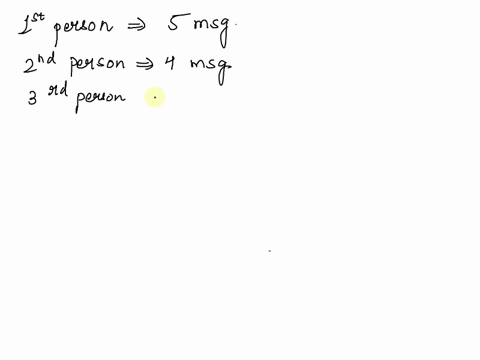 1st person ⇒ 5 msg.
2nd person ⇒ 4 msg.
3rd person